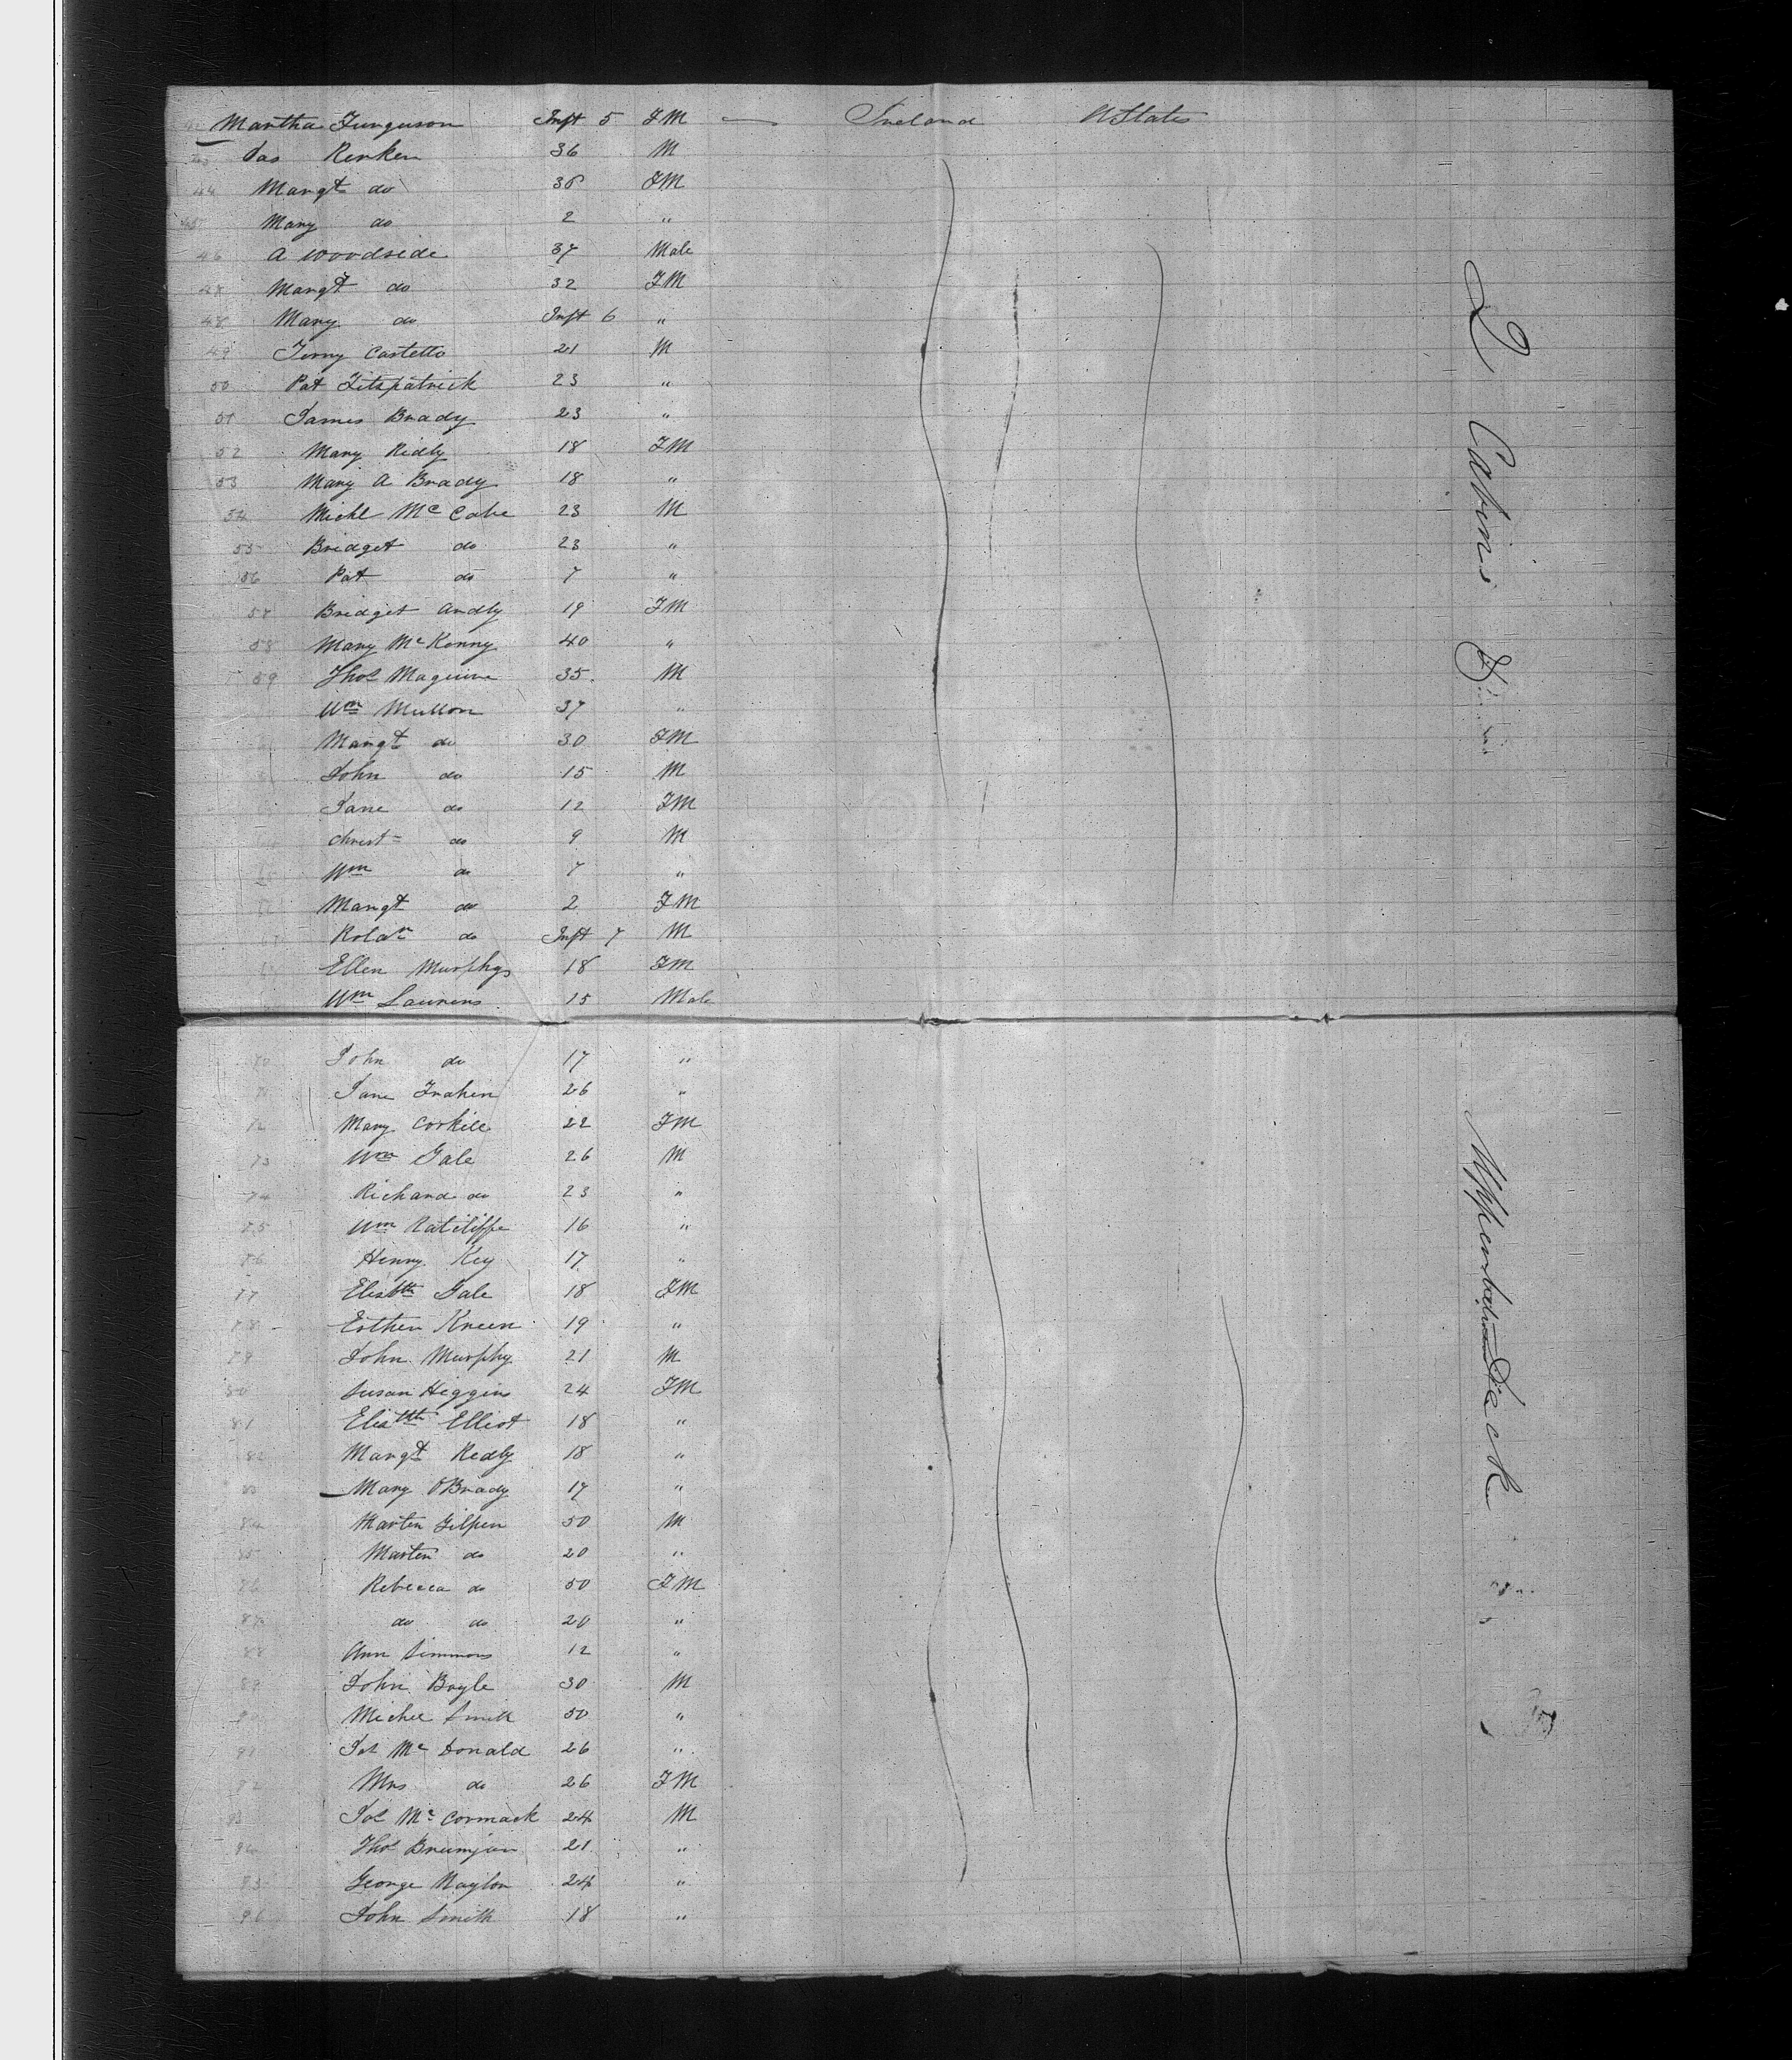 Martha Furguson Inft 5 FM Ireland UStates
Jas Renken 36 M
44 Margt do 36 FM
Mary do 2 "
46 A Woodside 37 Male
Margt do 32 FM
48 Mary do Inft 6 "
49 Terry Costello 21 M
50 Pat Fitzpatrick 23 "
51 James Brady 23 "
52 Mary Ridly 18 FM
53 Mary A Brady 18 "
54 Michl McCabe 23 M
55 Bridget do 23 "
56 Pat do 7 "
Bridget Andly 19 FM
58 Mary McKonny 40 "
59 Thos Maguire 35 M
Wm Mullon 37 "
Margt do 30 FM
John do 15 M
Jane do 12 FM
Christ do 9 M
Wm do 7 "
Margt do 2 FM
do Inft 7 M
Ellen Murphy 18 FM
Wm Laurens 15 Male
70 John do 17 "
Jane 26 "
72 Mary Corkill 22 FM
73 Wm Gale 26 M
74 Richard do 23 "
75 Wm Ratcliffe 16 "
76 Henry Key 17 "
77 Elisbth Gale 18 FM
78 Esther Kneen 19 "
79 John Murphy 21 M
80 Susan Higgins 24 FM
81 Eliabth Elliot 18 "
82 Margt Redly 18 "
83 Mary OBrady 17 "
84 Marten Gilpen 50 M
85 Marten do 20 "
86 Rebecca do 50 FM
87 do do 20 "
88 Ann Simmons 12 "
89 John Boyle 30 M
Michel Smith 50 "
91 Jas McDonald 26 "
Mrs do 26 FM
93 Jos McCormack 24 M
94 Thos 21 "
George Naylor 24 "
96 John Smith 18 "
2 Cabins
Upper Deck